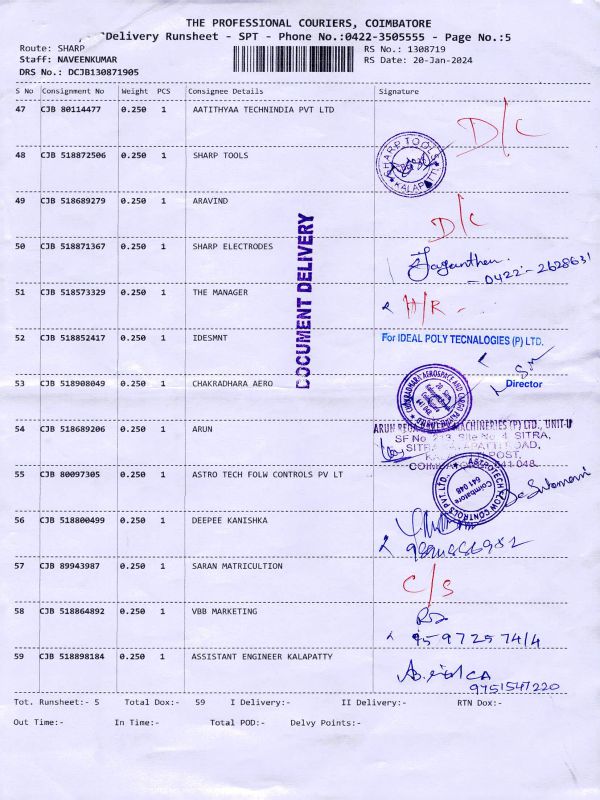 THE PROFESSIONAL COURIERS, COIMBATORE
Delivery Runsheet - SPT - Phone No.:0422-3505555 - Page No.:5
Route: SHARP RS No.: 1308719
Staff: NAVEENKUMAR RS Date: 20-Jan-2024
DRS No.: DCJB130871905
S No Consignment No Weight PCS Consignee Details Signature
47 CJB 80114477 0.250 1 AATITHYAA TECHNINDIA PVT LTD D/C
48 CJB 518872506 0.250 1 SHARP TOOLS
SHARP TOOLS
KALAPATTI
49 CJB 518689279 0.250 1 ARAVIND D/C
DOCUMENT DELIVERY
50 CJB 518871367 0.250 1 SHARP ELECTRODES Jaganthan
0422-2628631
51 CJB 518573329 0.250 1 THE MANAGER H/R
52 CJB 518852417 0.250 1 IDESMNT For IDEAL POLY TECNALOGIES (P) LTD.
Director
53 CJB 518908049 0.250 1 CHAKRADHARA AERO
CHAKRADHARA AEROSPACE AND CARGO
54 CJB 518689206 0.250 1 ARUN ARUN MACHINERIES (P) LTD., UNIT-II
SF No 213, Site No 4, SITRA,
SITRA ROAD,
POST,
COIMBATORE 641 048.
55 CJB 80097305 0.250 1 ASTRO TECH FOLW CONTROLS PV LT
FLOW CONTROLS PVT. LTD.
Coimbatore
641 048
56 CJB 518800499 0.250 1 DEEPEE KANISHKA
57 CJB 89943987 0.250 1 SARAN MATRICULTION C/S
58 CJB 518864892 0.250 1 VBB MARKETING
9597257414
59 CJB 518898184 0.250 1 ASSISTANT ENGINEER KALAPATTY
9751547220
Tot. Runsheet:- 5 Total Dox:- 59 I Delivery:- II Delivery:- RTN Dox:-
Out Time:- In Time:- Total POD:- Delvy Points:-